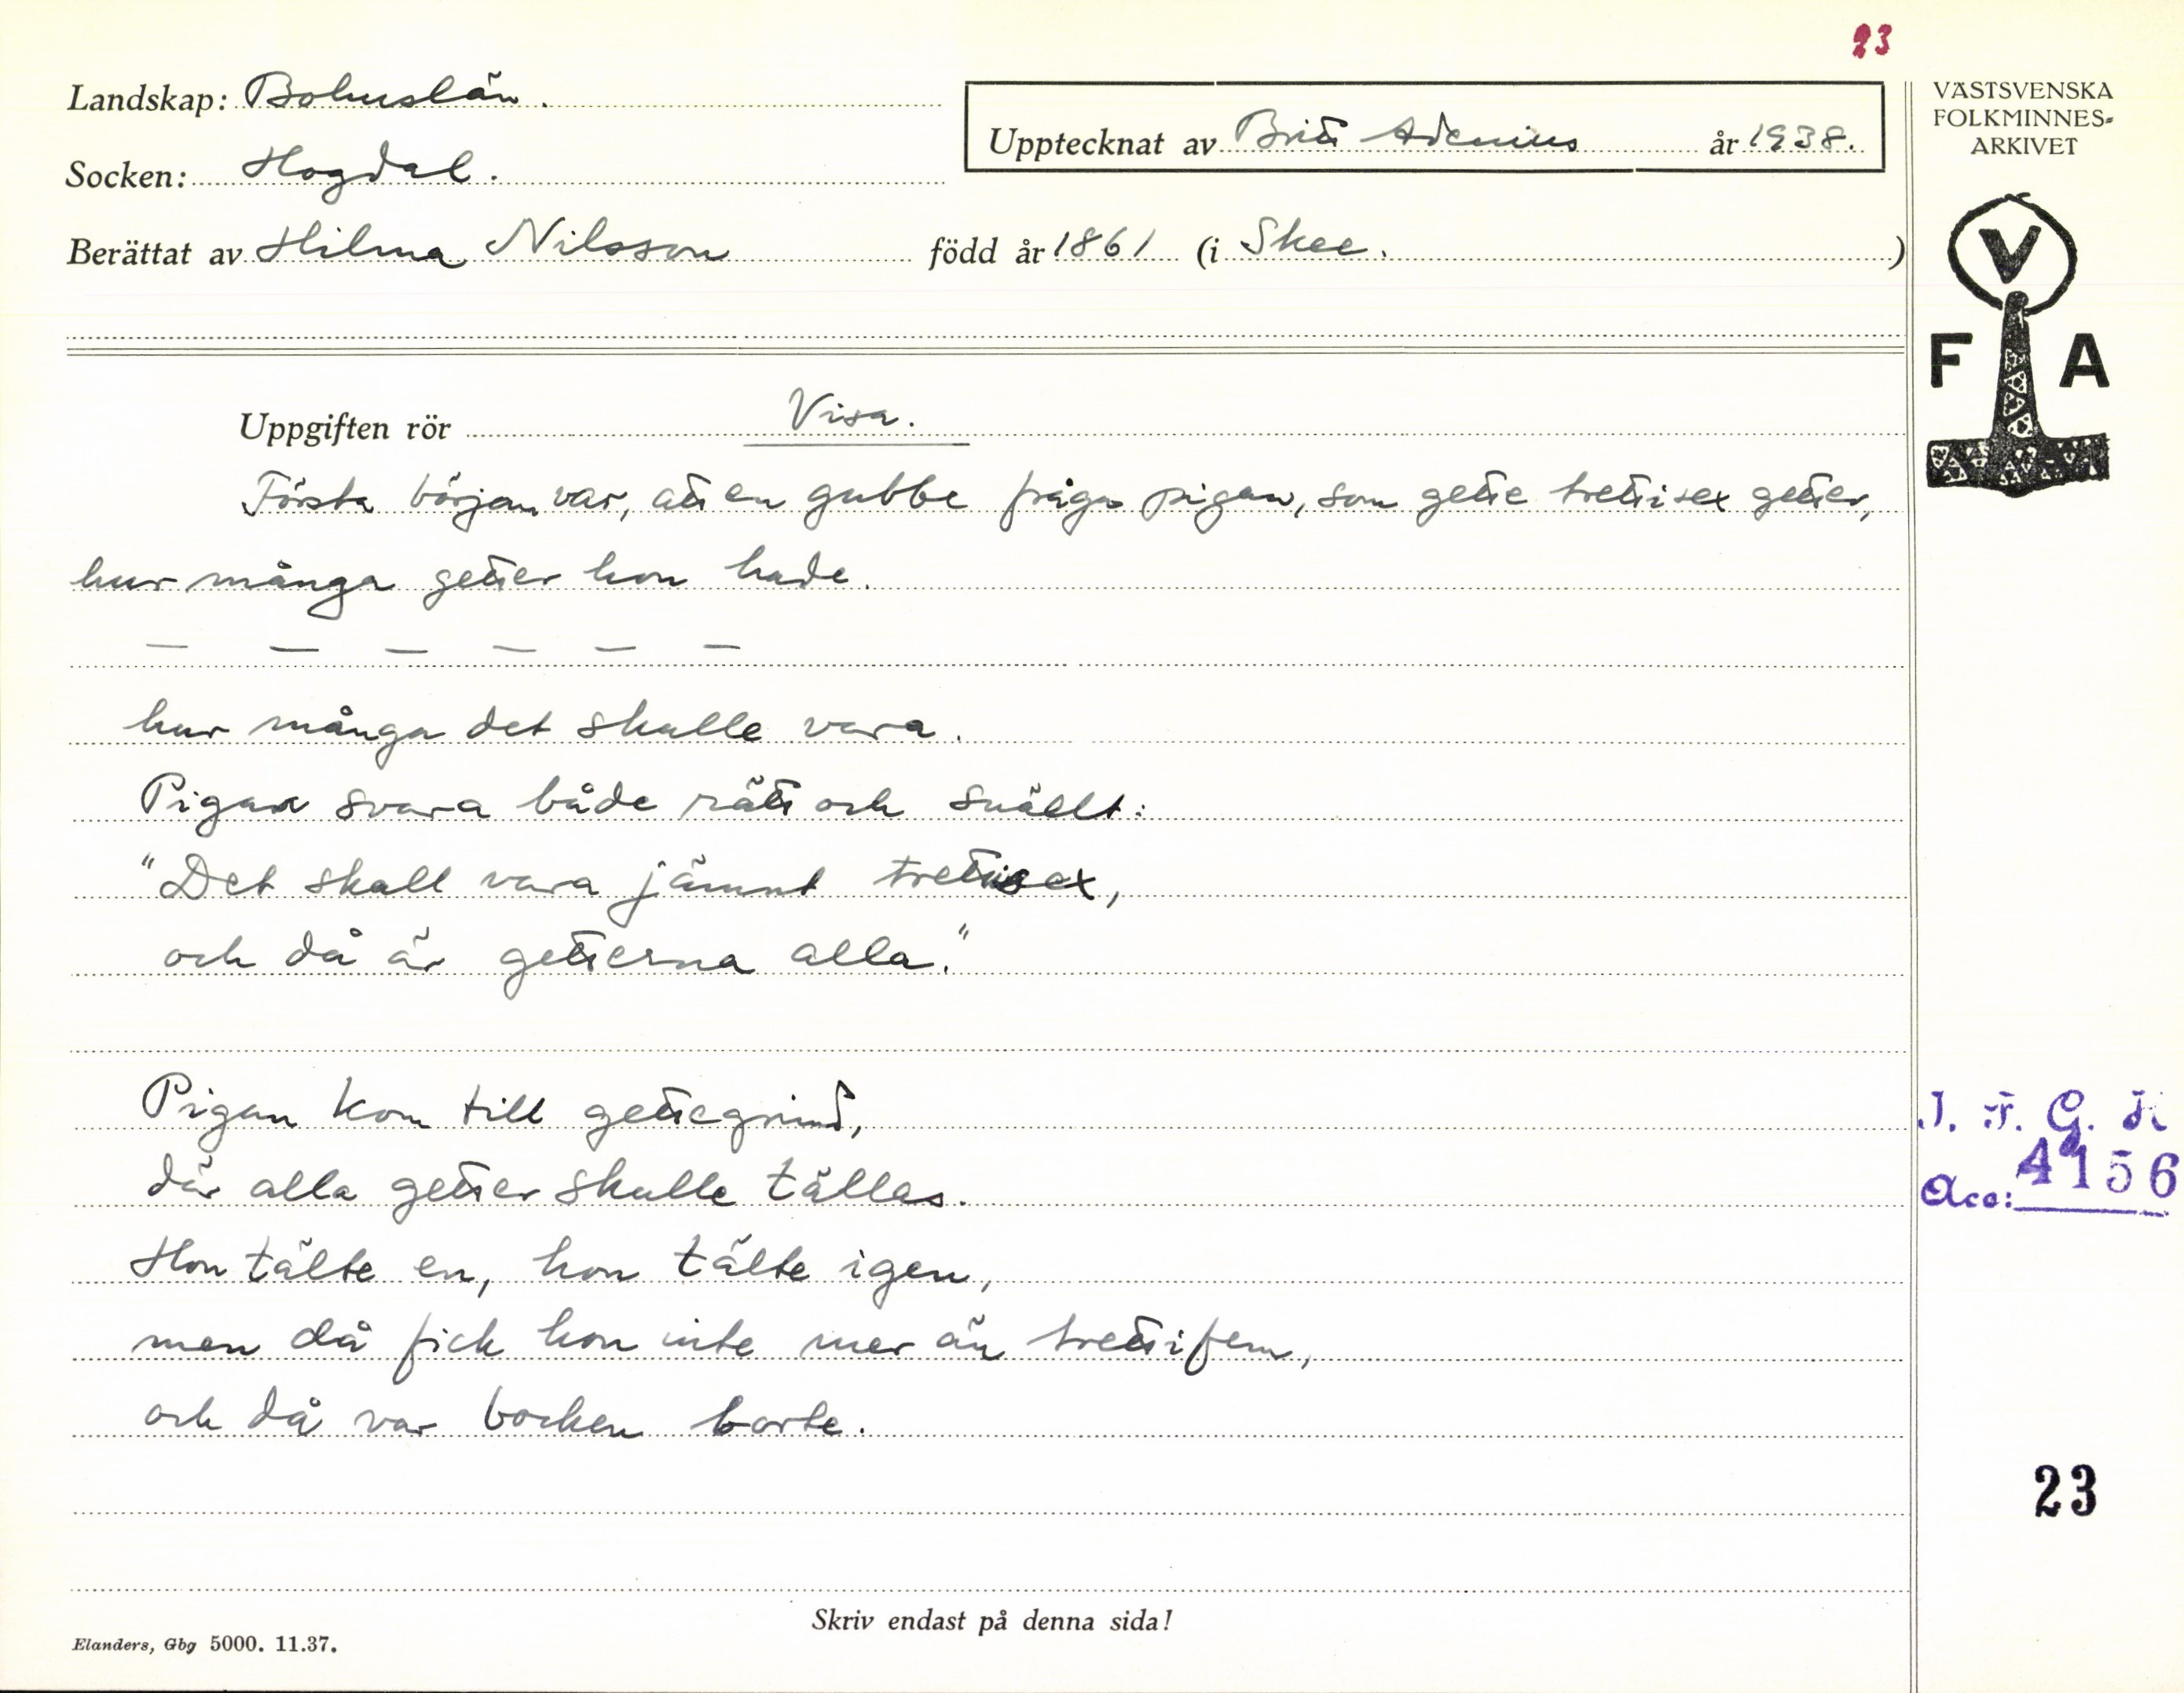 23
Landskap: Bohuslän.
Socken: Hogdal.
Berättat av Hilma Nilsson född år 1861 (i Skee. )
Upptecknat av Britt Adenius år 1938.
VÄSTSVENSKA
FOLKMINNES-
ARKIVET
V
F A
Uppgiften rör Visa.
Första början var, att en gubbe fråga pigan, som gette trettisex getter,
hur många getter hon hade.
— — — — — —
hur många det skulle vara.
Pigan svara både rätt och snällt:
"Det skall vara jämnt trettisex,
och då är getterna alla."
Pigan kom till gettegrind,
där alla getter skulle tällas.
Hon tälte en, hon tälte igen,
men då fick hon inte mer än trettifem,
och då var bocken borte.
I. F. G. H
Acc: 4156
23
Skriv endast på denna sida!
Elanders, Gbg 5000. 11.37.